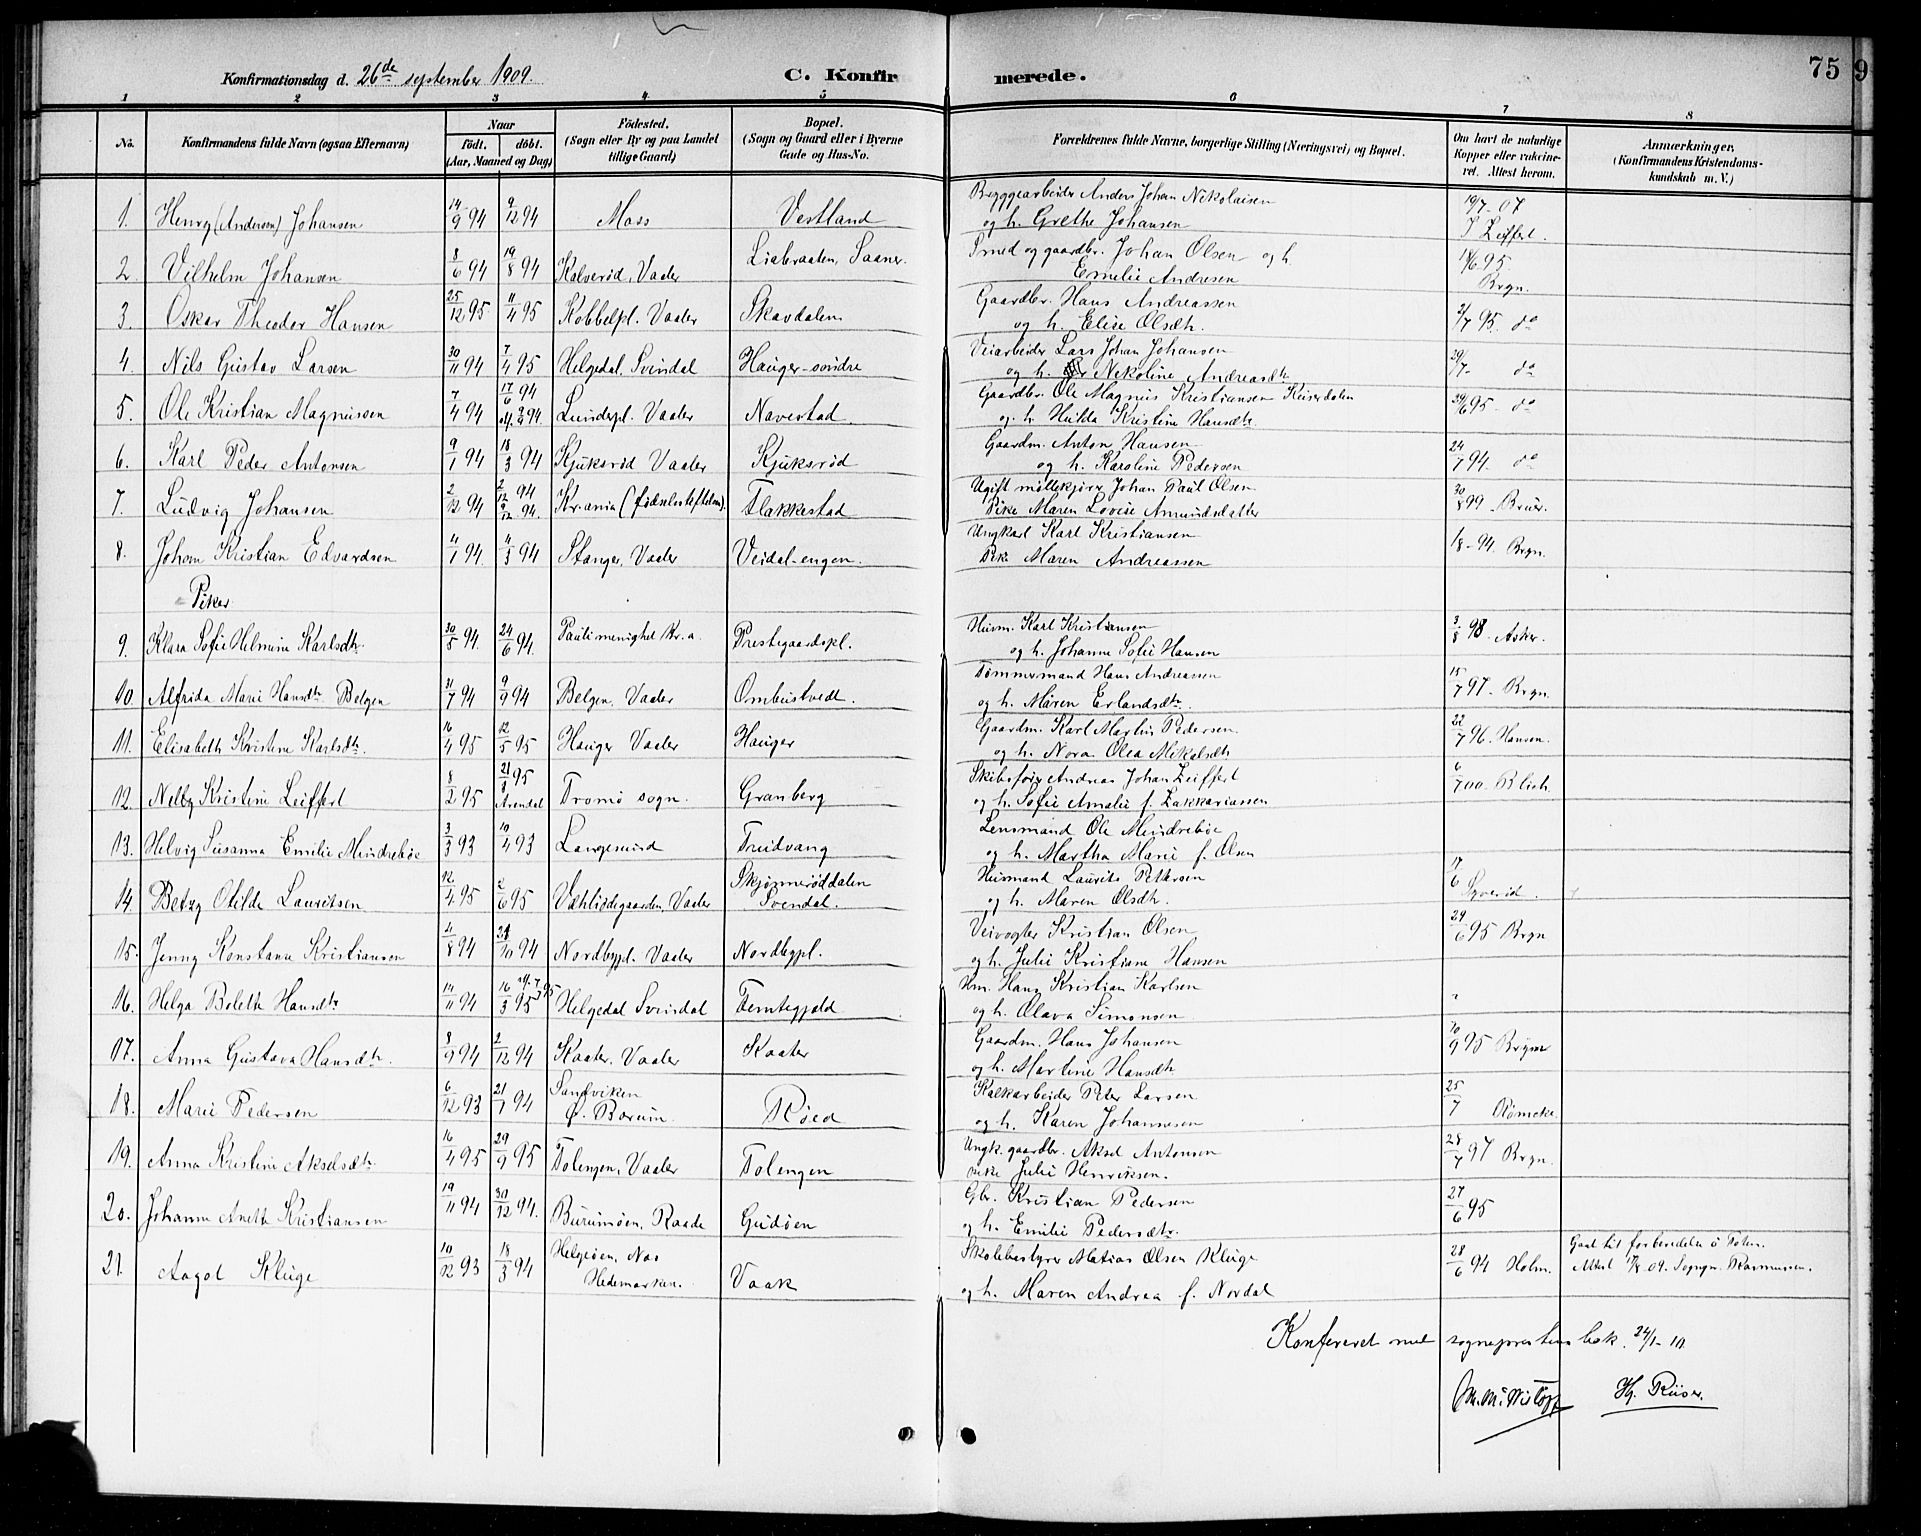 Konfirmationsdag d. 26de september 1909.
C. Konfirmerede.
75
9
1 2 3 4 5 6 7 8
No.
Konfirmandens fulde Navn (ogsaa Efternavn)
Naar
født. døbt.
(Aar, Maaned og Dag)
Fødested.
(Sogn eller By og paa Landet
tillige Gaard)
Bopæl.
(Sogn og Gaard eller i Byerne
Gade og Hus-No.
Forældrenes fulde Navne, borgerlige Stilling (Næringsvei) og Bopæl.
Om havt de naturlige
Kopper eller vakcine-
ret. Attest herom.
Anmærkninger.
(Konfirmandens Kristendoms-
kundskab m. V.)
1. Henry (Andersen) Johansen 14/9 94 9/12 94 Moss Vestland Byggearbeider Anders Johan Nikolaisen 19/7 07
og h. Grethe Johansen Leiffert.
2 Vilhelm Johansen 8/6 94 19/8 94 Kalverød, Vaaler Liabraaten, Saaner. Smed og gaardbr. Johan Olsen og h. 18/6 95
Emelie Andresen Brgn.
3. Oskar Theodor Hansen 25/12 95 11/4 95 Kobbelpl. Vaaler Skavdalen Gaardbr. Hans Andreassen
og h. Elise Olsdtr. 2/7 95. do
4. Nils Gustav Larsen 30/11 94 7/4 95 Helgedal, Svindal Hauger-søndre Veiarbeider Lars Johan Johansen
og h. Nekoline Andreasdtr 29/7- do
5. Ole Kristian Magnussen 7/4 94 17/6 94 Lundepl. Vaaler Navestad. Gaardbr. Ole Magnus Kristiansen Keiserdalen
og h. Hulda Kristine Hansdtr. 95- do
6. Karl Peder Antonsen 9/1 94 18/3 94 Kjuksrød Vaaler Kjuksrød Gaardm. Anton Hansen
og h. Karoline Pedersen 24/7 94. do
7. Ludvig Johansen 2/12 94 2/12 94 Kr.ania (fødselsstiftelsen). Flakkestad Ugift møllekjører Johan Paul Olsen
9/12 94. Pike Maren Lovise Amundsdatter 30/8 99 Bruer.
8. Johan Kristian Edvardsen 4/1 94. 4/3 94 Stanger, Vaaler Veidal-engen. Ungkarl Karl Kristiansen
Pike Maren Andreassen 1/8-94. Brgn.
Piker
9. Klara Sofie Helmine Karlsdtr. 30/5 94. 24/6 94. Pauli menighet Kr.a. Prestegaardspl. Husm. Karl Kristiansen
og h. Johanne Sofie Hansen 3/8 98. Asker.
10. Alfrida Marie Hansdtr. Belgen 31/7 94 9/9 94 Belgen, Vaaler Ombustvedt. Tømmermand Hans Andreassen
og h. Maren Erlandsdtr. 15/7 97. Brgn.
11. Elisabeth Kristine Karlsdtr. 16/4 95 12/5 95 Hauger Vaaler Hauger Gaardm. Karl Martin Pedersen
og h. Nora Olea Mikalsdtr 22/7 96. Hansen.
12. Nelly Kristine Leiffert 8/2 95 21/8 95 Arendal Tromø sogn. Granberg Skibsfører Andreas Johan Leiffert
og h. Sofie Amalie f. Zakkariassen 6/7 00. Blich.
13. Helvig Susanna Emilie Mindrebøe 3/3 93 19/4 93 Langesund Truidvang Lensmand Ole Mindrebøe
og h. Martha Marie f. Olsen
14. Betzy Otilde Lauritsen 12/4 95 2/6 95 Væhlidegaarden, Vaaler Skjønnerøddalen Svendal. Husmand Laurits Pettersen
og h. Maren Olsdtr. 17/6 Syverid.
15. Jenny Konstanse Kristiansen 4/8 94 28/10 94 Nordbypl. Vaaler Nordbypl. Veivogter Kristian Olsen
og h. Julie Kristiane Hansen 29/6 95 Brgn
16. Helga Bolette Hansdtr 14/11 94 16/3 95 Helgedal Svindal Femtegjeld Hm. Hans Kristian Karlsen
og h. Olava Simonsen "
17. Anna Gustava Hansdtr. 8/9 94 2/12 94 Kaater, Vaaler Kaater Gaardm. Hans Johansen
og h. Martine Hansdtr. 10/9 95 Brgn
18. Marie Pedersen 6/12 93 21/7 94 Sandviken
Ø. Bærum. Røed Kalkarbeider Peter Larsen
og h. Karen Johannesen 25/7 Rømcke
19. Anna Kristine Akselsdtr. 16/4 95 29/9 95 Folengen, Vaaler Folengen Ungk. gaardbr. Aksel Antonsen
pike Julie Henriksen. 28/7 97 Brgn.
20. Johanne Anette Kristiansen 19/11 94 30/12 94. Burumøen, Raade Gudøen Gbr. Kristian Pedersen
og h. Emilie Pedersdtr. 27/6 95
21. Aagot Kluge 10/12 93 18/3 94 Helgøen, Nes
Hedemarken. Vaak Skolebestyrer Matias Olsen Kluge
og h. Maren Andrea f. Nordal 28/6 94 Holm. Gaat til forberedelse ø Toten.
Attest 17/8 09. Sogngr. Rasmussen.
Konfereret med sogneprestens bok. 24/1-10
Hj. Riiser.